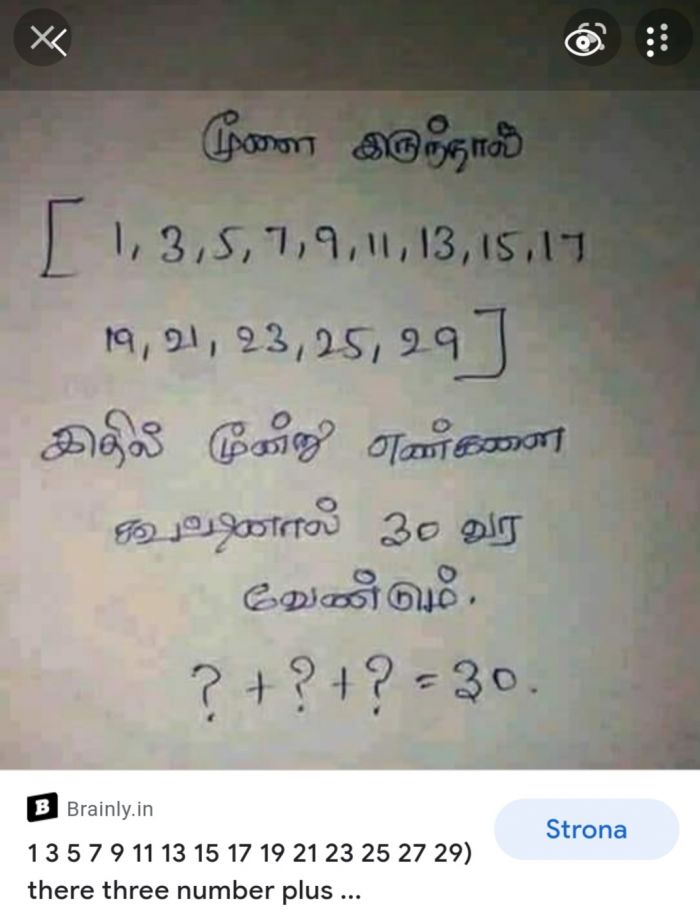 மூளை இருந்தால்
[ 1, 3, 5, 7, 9, 11, 13, 15, 17
19, 21, 23, 25, 29 ]
இதில் மூன்று எண்களை
கூட்டினால் 30 வர
வேண்டும்.
? + ? + ? = 30.
B Brainly.in
Strona
1 3 5 7 9 11 13 15 17 19 21 23 25 27 29)
there three number plus ...